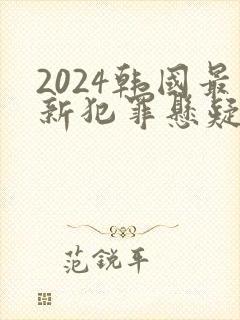 2024韩国最
新犯罪悬疑
范锐平